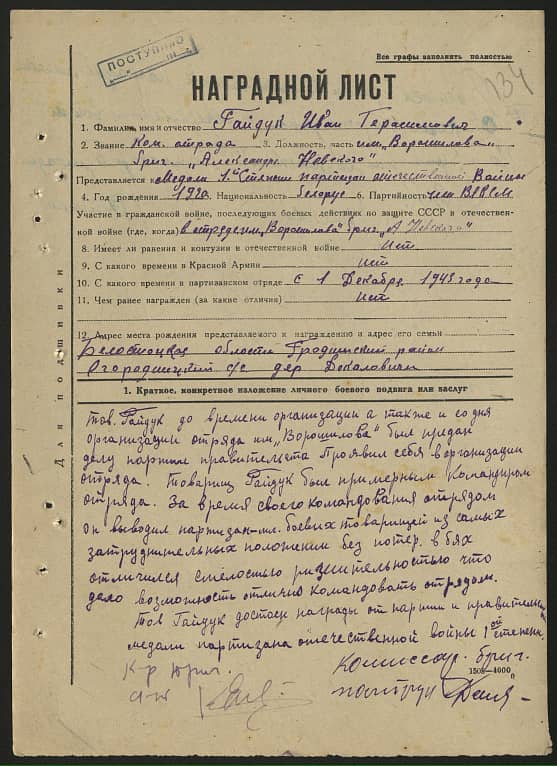 ПОСТУПИЛО
Все графы заполнять полностью
134
НАГРАДНОЙ ЛИСТ
1. Фамилия, имя и отчество Гайдук Иван Герасимович
2. Звание Ком. отряда 3. Должность, часть им. „Ворошилова"
бриг. „Александра Невского"
Представляется к Медали 1ой Степени партизан отечественной Войны
4. Год рождения 1920 Национальность белорус 6. Партийность чл ВЛКСМ
Участие в гражданской войне, последующих боевых действиях по защите СССР и отечествен-
ной войне (где, когда) в отряде им „Ворошилова" бриг „А Невского"
8. Имеет ли ранения и контузии в отечественной войне Нет
9. С какого времени в Красной Армии нет
10. С какого времени в партизанском отряде с 1 Декабря 1943 года
11. Чем ранее награжден (за какие отличия) Нет
12. Адрес места рождения представляемого к награждению и адрес его семьи
Белостоцкая области Гродненский район
с/с дер
Для подшивки
1. Краткое, конкретное изложение личного боевого подвига или заслуг
тов. Гайдук до времени организации а также и со дня
организации отряда им „Ворошилова" был предан
делу партии правительства Проявил себя в организации
отряда. Товарищ Гайдук был примерным Командиром
отряда. За время своего командования отрядом
он выводил партизан боевых товарищей из самых
затруднительных положений без потер. в бях
отличился смелостью ришительностью что
дало возможность отлично командовать отрядом.
Тов Гайдук достоен награды от партии и правительства
медали партизана отечественной войны 1ой степени.
К-р бриг. Комиссар. бриг.
1508—4000